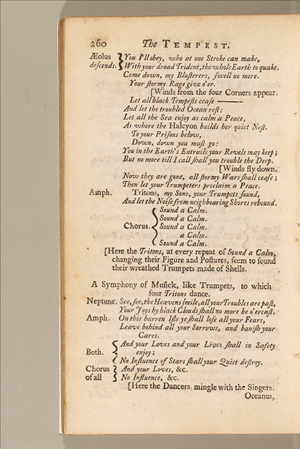 260 The TEMPEST.
Æolus descends. You I'll obey, who at one Stroke can make,
With your dread Trident, the whole Earth to quake.
Come down, my Blusterers, swell no more.
Your stormy Rage give o'er.
[Winds from the four Corners appear.
Let all black Tempests cease ———
And let the troubled Ocean rest:
Let all the Sea enjoy as calm a Peace,
As where the Halcyon builds her quiet Nest.
To your Prisons below,
Down, down you must go:
You in the Earth's Entrails your Revels may keep;
But no more till I call shall you trouble the Deep.
[Winds fly down.
Now they are gone, all stormy Wars shall cease;
Then let your Trumpeters proclaim a Peace.
Amph. Tritons, my Sons, your Trumpets sound,
And let the Noise from neighbouring Shores rebound.
Chorus. Sound a Calm.
Sound a Calm.
Sound a Calm.
a Calm.
Sound a Calm.
[Here the Tritons, at every repeat of Sound a Calm,
changing their Figure and Postures, seem to sound
their wreathed Trumpets made of Shells.
A Symphony of Musick, like Trumpets, to which
four Tritons dance.
Neptune. See, see, the Heavens smile, all your Troubles are past,
Your Joys by black Clouds shall no more be o'ercast.
Amph. On this barren Isle ye shall lose all your Fears,
Leave behind all your Sorrows, and banish your
Cares.
Both. And your Loves and your Lives shall in Safety
enjoy;
No Influence of Stars shall your Quiet destroy.
Chorus of all And your Loves, &c.
No Influence, &c.
[Here the Dancers mingle with the Singers.
Oceanus,